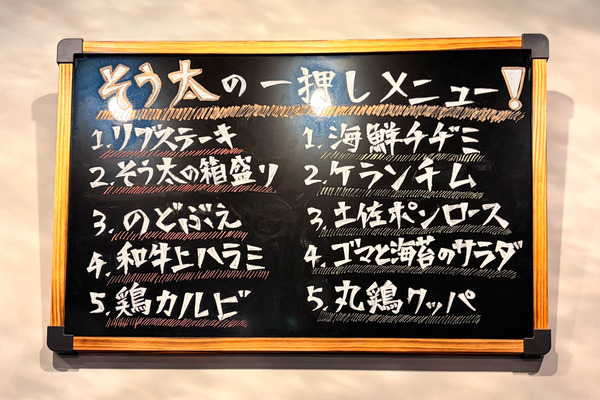 そう太の一押しメニュー!
1.リブステーキ
2.そう太の箱盛り
3.のどぶえ
4.和牛上ハラミ
5.鶏カルビ
1.海鮮チヂミ
2.ケランチム
3.土佐ポンロース
4.ゴマと海苔のサラダ
5.丸鶏クッパ